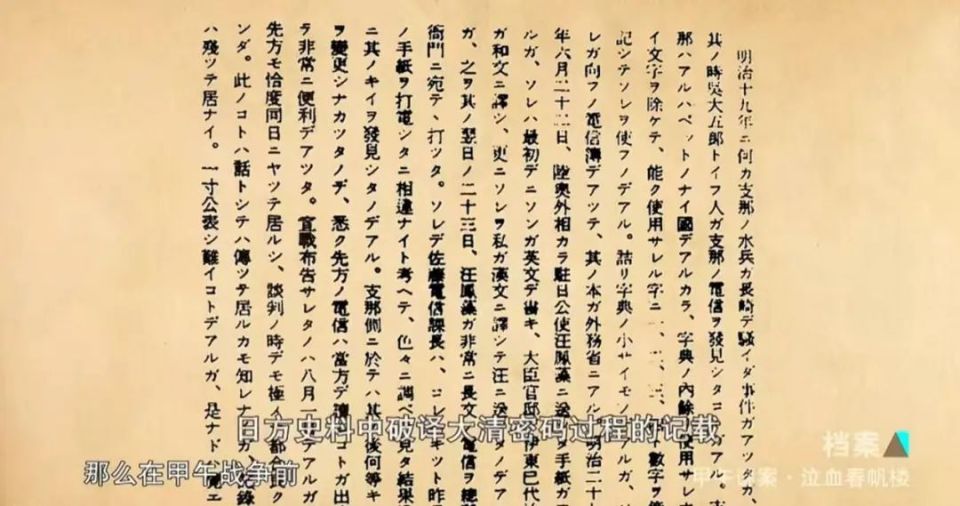 明治十九年ニ何カ支那ノ水兵ガ長崎デ騷イダ事件ガアツタガ、
其ノ時吳大五郎トイフ人ガ支那ノ電信ヲ發見シタコ アル。
那ハアルハベツトノナイ國デアルカラ、字典ノ內餘 使用サレ
イ文字ヲ除ケテ、能ク使用サレル字ニ一、二、三、 數字ヲ
記シテソレヲ使フノデアル。詰リ字典ノ小サイモノ ルガ、
レガ向フノ電信簿デアツテ、其ノ本ガ外務省ニアル 明治二十
年六月二十二日、陸奧外相カラ駐日公使汪鳳藻ニ送 手紙ガ
ルガ、ソレハ最初デニソンガ英文デ書キ、大臣官邸 伊東巳代
ガ和文ニ譯シ、更ニソレヲ私ガ漢文ニ譯シテ汪ニ送 タノデア
ガ、之ヲ其ノ翌日ノ二十三日、汪鳳藻ガ非常ニ長文 電信ヲ總
衙門ニ宛テ、打ツタ。ソレデ佐藤電信課長ハ、コレ キツト昨
ノ手紙ヲ打電シタニ相違ナイト考ヘテ、色々ニ調ベ 見タ結果
ニ其ノキイヲ發見シタノデアル。支那側ニ於テハ其 後何等キ
ヲ變更シナカツタノデ、悉ク先方ノ電信ハ當方デ讀 コトガ出
ラ非常ニ便利デアツタ。宣戰布告サレタノハ八月一 デアルガ
先方モ恰度同日ニヤツテ居ルシ、談判ノ時デモ極 都合 ク
ンダ。此ノコトハ話トシテハ傳ツテ居ルカモ知レナ ガ、 錄
ハ殘ツテ居ナイ。一寸公表シ難イコトデアルガ、是ナド 覺エ
日方史料中破译大清密码过程的记载
那么在甲午战争前
档案
甲午谍案·泣血春帆楼